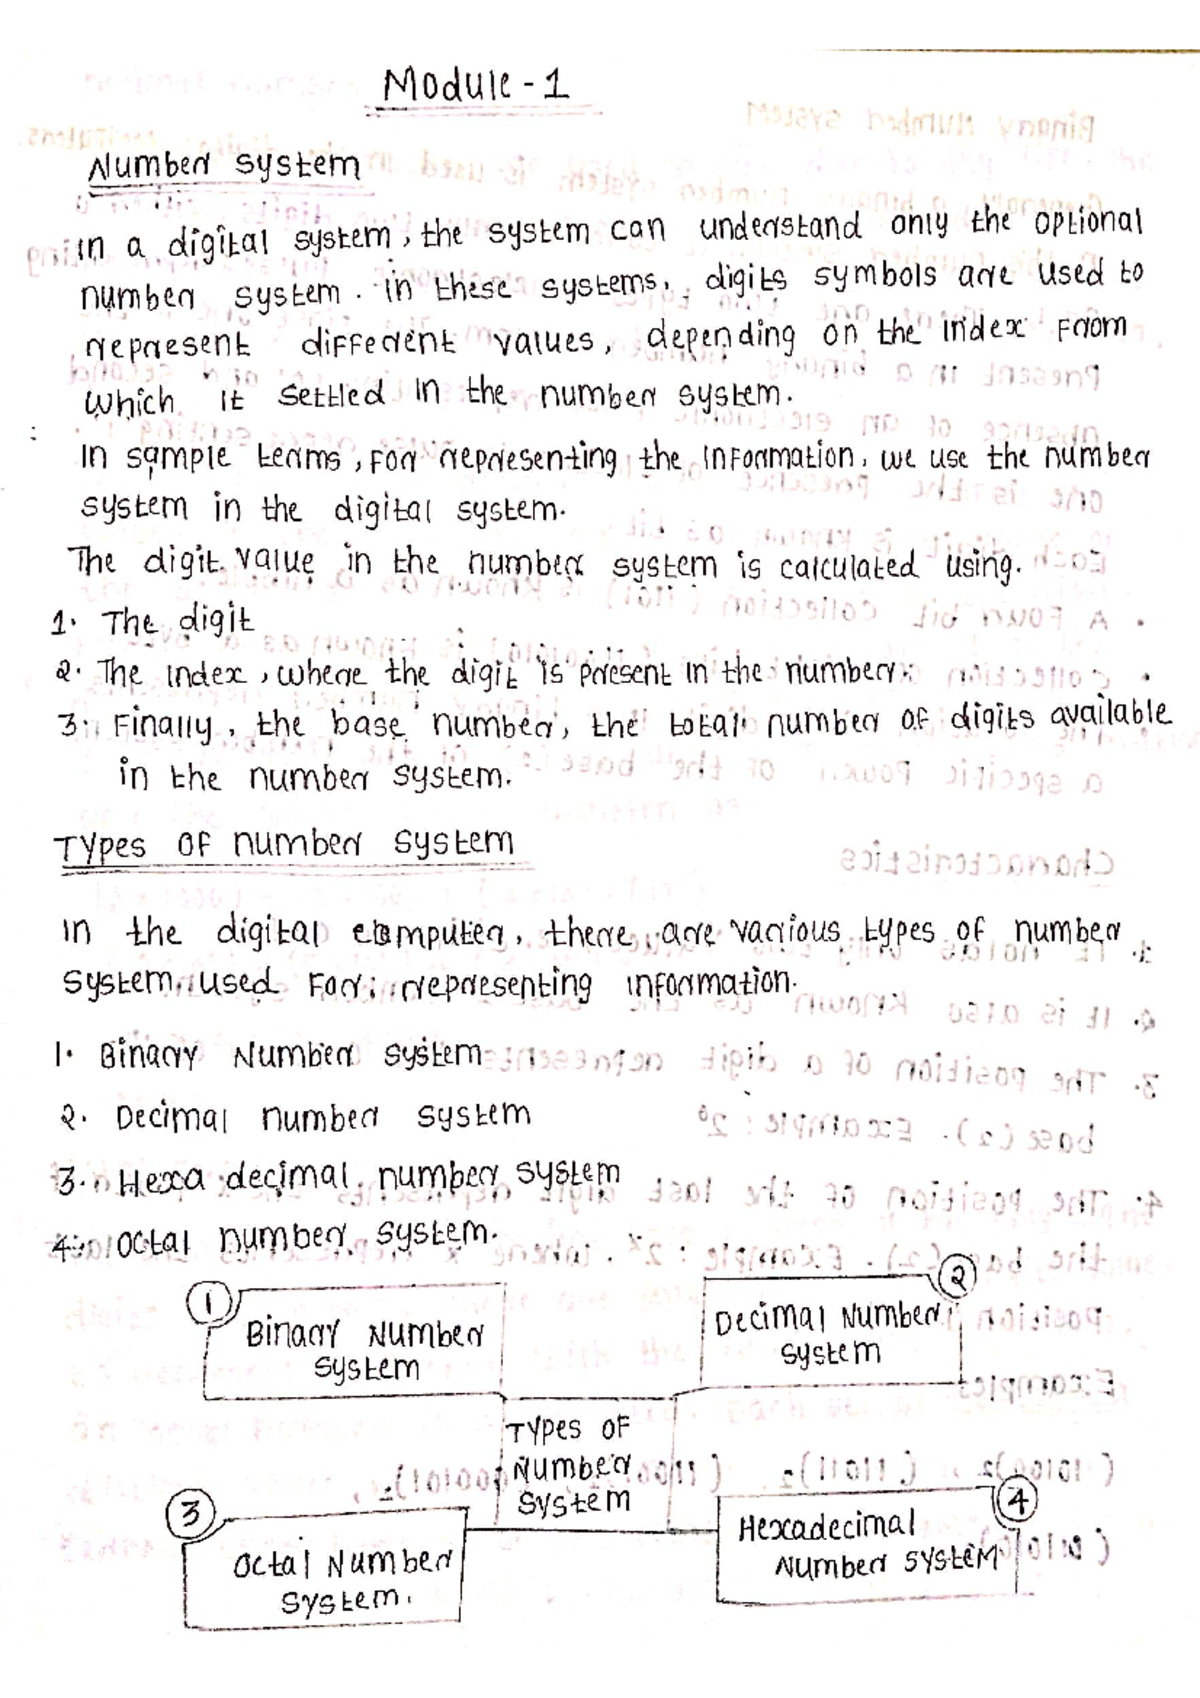 Module - 1
Number system
In a digital system, the system can understand only the optional
number system. in these systems, digits symbols are used to
represent different values, depending on the index from
which it settled in the number system.
In sample terms, for representing the information, we use the number
system in the digital system.
The digit value in the number system is calculated using.
1. The digit
2. The index, where the digit is present in the number.
3. Finally, the base number, the total number of digits available
in the number system.
Types of number system
In the digital computer, there are various types of number
system used for representing information.
1. Binary Number system
2. Decimal number system
3. Hexa decimal number system
4. Octal number system.
1
Binary Number
system
2
Decimal Number
system
Types of
Number
System
3
Octal Number
System.
4
Hexadecimal
Number System